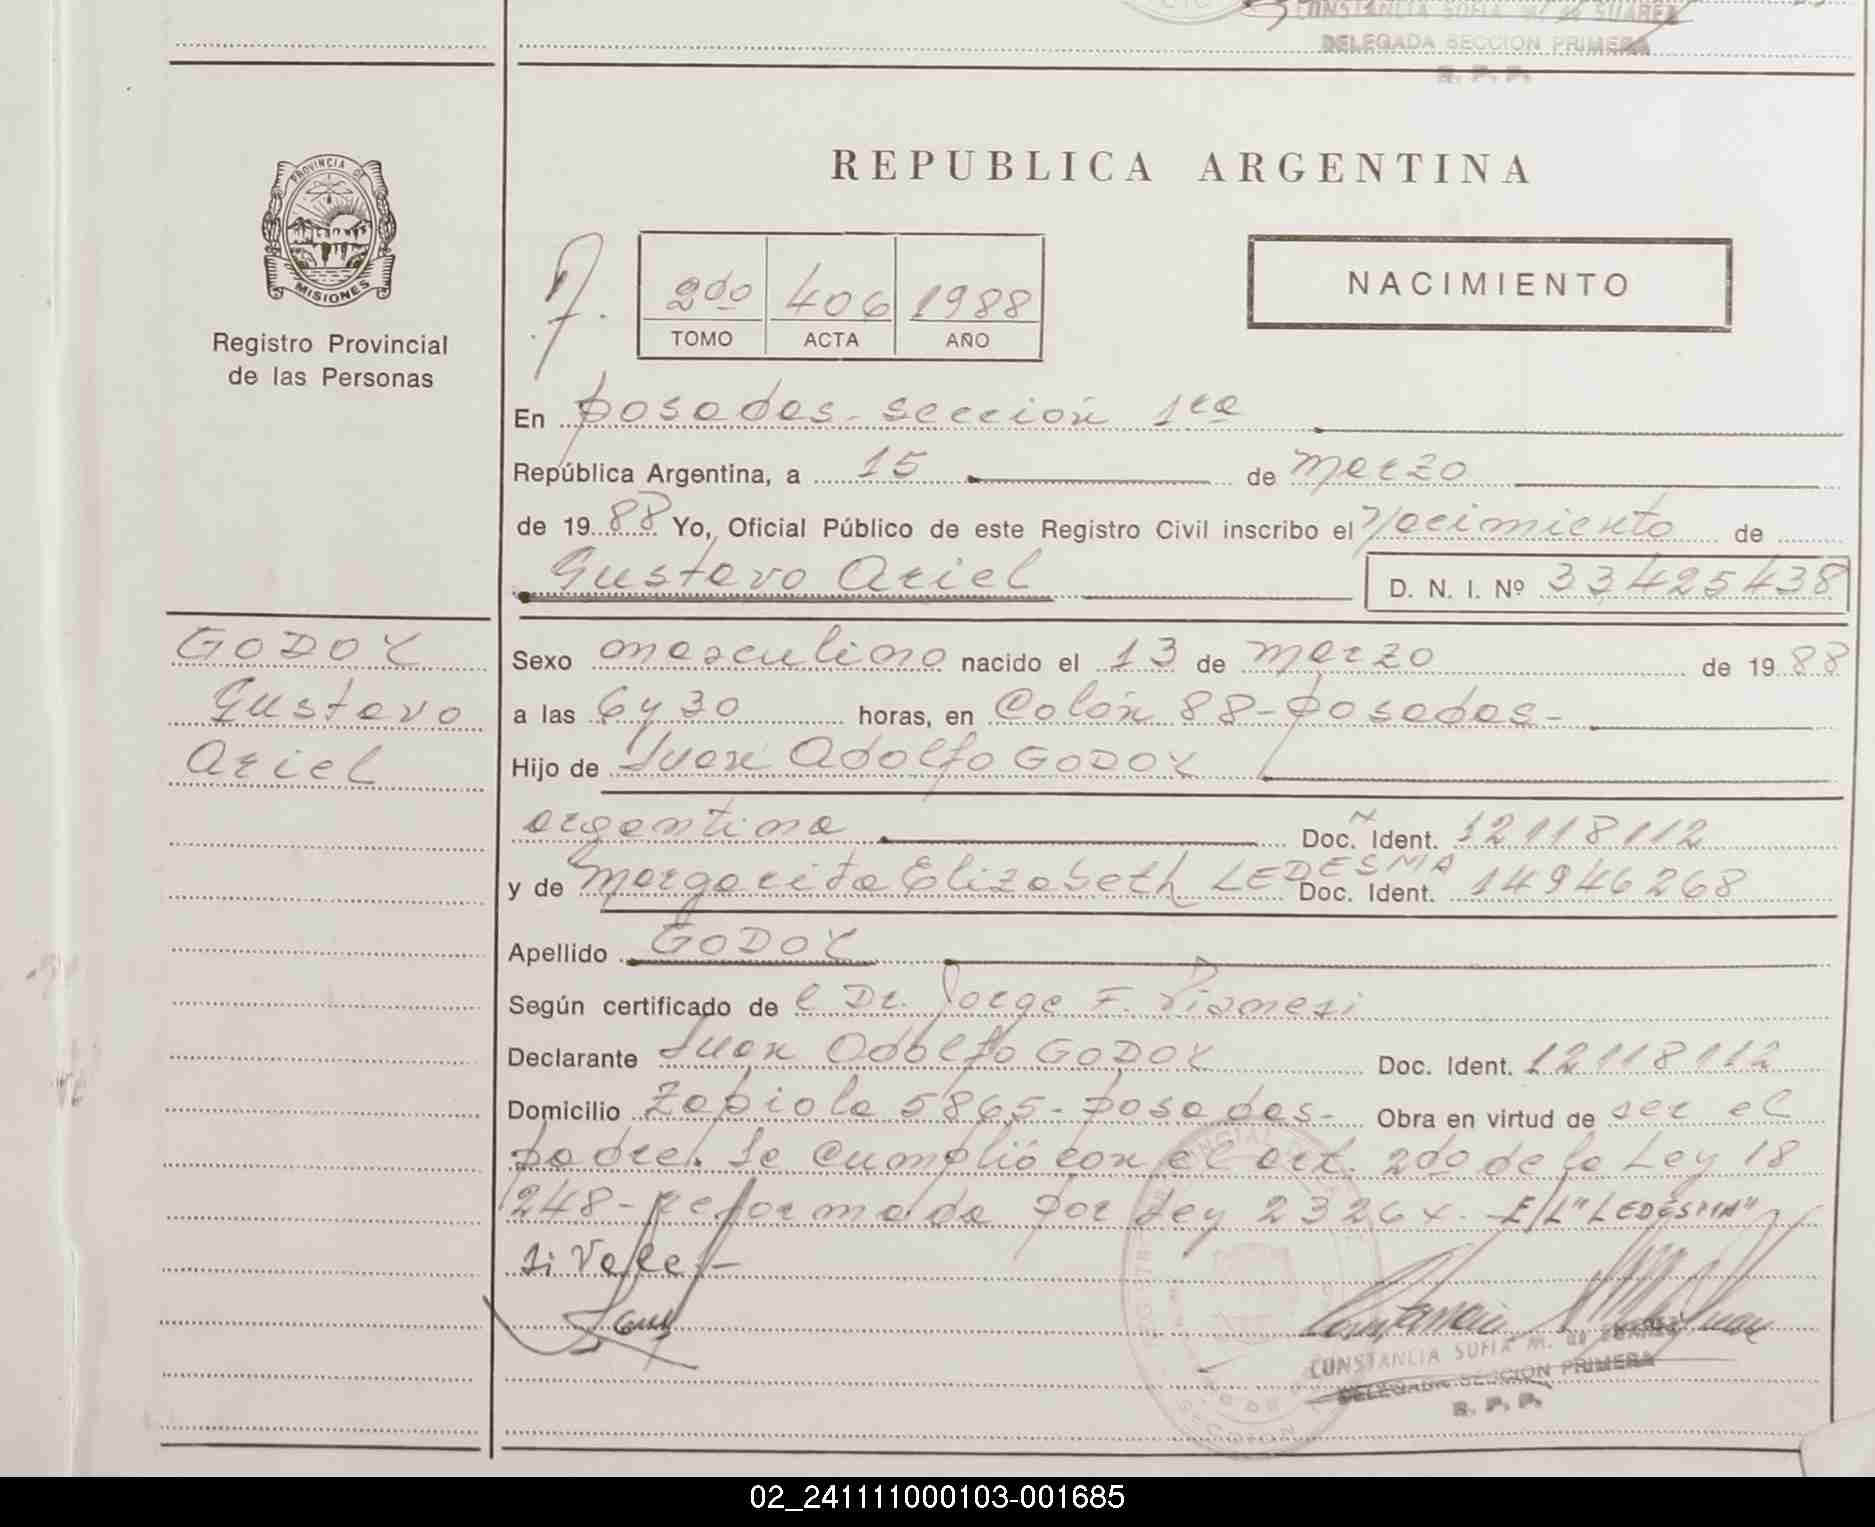 CONSTANCIA SOFIA M. de SUAREZ
DELEGADA SECCION PRIMERA
R. P. P.
PROVINCIA DE
MISIONES
Registro Provincial
de las Personas
REPUBLICA ARGENTINA
2do 406 1988
TOMO ACTA AÑO
NACIMIENTO
En posadas - sección 1ra
República Argentina, a 15 de marzo
de 19 88 Yo, Oficial Público de este Registro Civil inscribo el Nacimiento de
Gustavo Ariel D. N. I. Nº 33425438
GODOY
Gustavo
Ariel
Sexo masculino nacido el 13 de marzo de 19 88
a las 6 y 30 horas, en Colón 88 - posadas -
Hijo de Juan Adolfo GODOY
argentina Doc. Ident. 12118112
y de Margarita Elizabeth LEDESMA Doc. Ident. 14946268
Apellido GODOY
Según certificado de l Dr. Jorge F.
Declarante Juan Adolfo GODOY Doc. Ident. 12118112
Domicilio Zapiola 5865 - posadas - Obra en virtud de ser el
padre. Se cumplió con el art. 2do de la Ley 18
248 - reformada por Ley 23264. - E/L "LEDESMA"
si Vale. -
CONSTANCIA SOFIA M. de SUAREZ
DELEGADA SECCION PRIMERA
R. P. P.
02_241111000103-001685